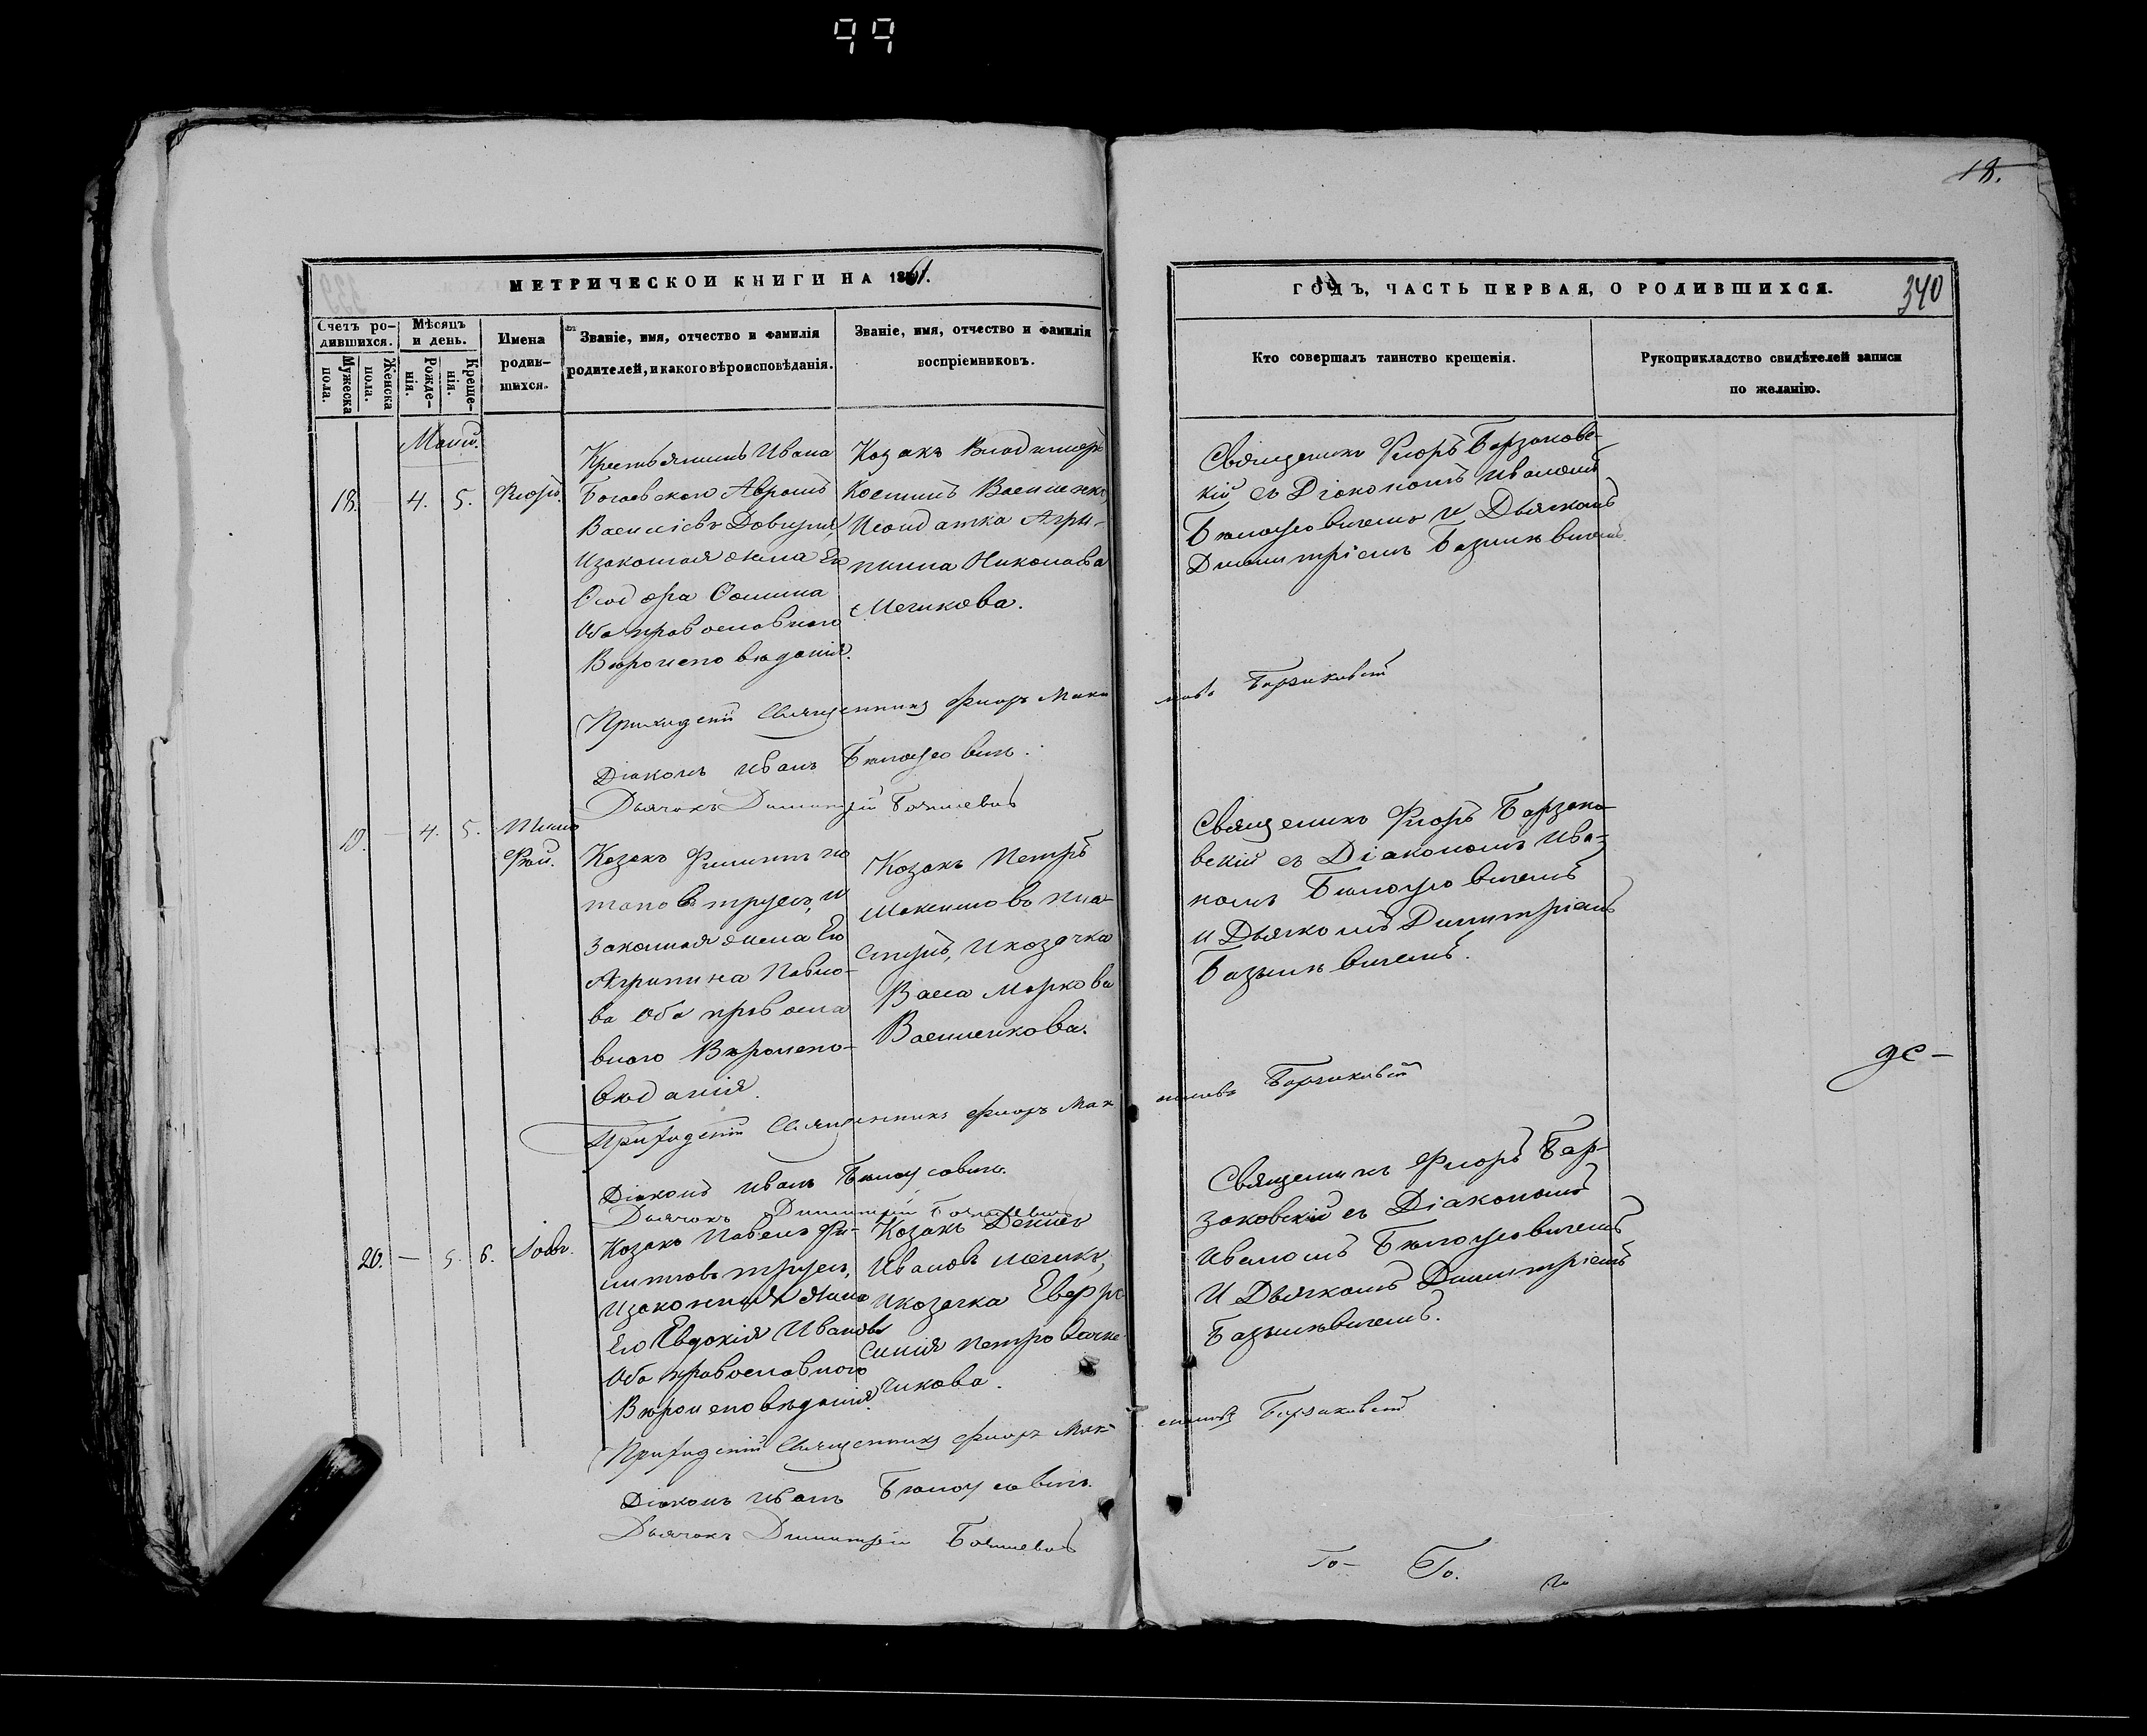 99
18.
МЕТРИЧЕСКОЙ КНИГИ НА 1861.
ГОДЪ, ЧАСТЬ ПЕРВАЯ, О РОДИВШИХСЯ.
340
Счетъ ро-
дившихся.
Мужеска
пола.
Женска
пола.
Мѣсяцъ
и день.
Рожде-
нія.
Креще-
нія.
Имена
родив-
шихся.
Званіе, имя, отчество и фамилія
родителей, и какого вѣроисповѣданія.
Званіе, имя, отчество и фамилія
воспріемниковъ.
Кто совершалъ таинство крещенія.
Рукоприкладство свидѣтелей записи
по желанію.
Маій.
18. — 4. 5.
Крестьянинъ Ивана
Богаевскаго Аврамъ
Василіевъ
Изаконная жена Его
Ѳеодора Ѳомина
Оба православнаго
Вѣроисповѣданія.
Козакъ Владимеръ
Косминъ Василенко,
Исолдатка Агри-
пина Николаева
Мечикова.
Священикъ Флоръ Барзаковс-
кій съ Діакономъ Иваномъ
Бѣлоусовичемъ и Дьячкомъ
Димитріемъ
Приходскій Священникъ Флоръ Максимовъ Барзаковскій
Діаконъ Иванъ Бѣлоусовичъ.
Дьячокъ Димитрій
19. — 4. 5.
Тимо
фей.
Козакъ Филиппъ
и
законная жена Его
Агрипина Павло-
ва Оба правосла
внаго Вѣроиспо-
вѣданія.
Козакъ Петръ
Максимовъ
Икозачка
Васса Маркова
Василенкова.
Священикъ Флоръ Барзако-
вскій съ Діакономъ Ива-
номъ Бѣлоусовичемъ
и Дьячкомъ Димитріемъ
де—
Приходскій Священникъ Флоръ Максимовъ Барзаковскій
Діаконъ Иванъ Бѣлоусовичъ.
Дьячокъ Димитрій
20. — 5. 6. Іовъ.
Козакъ Павелъ Фи-
липовъ
Изаконная жена
Его Евдокія Иванова
Оба православнаго
Вѣроисповѣданія.
Козакъ Денисъ
Ивановъ
Икозачка Евфро
синія Петрова
чикова.
Священикъ Флоръ Бар-
заковскій съ Діакономъ
Иваномъ Бѣлоусовичемъ
И Дьячкомъ Димитріемъ
Приходскій Священникъ Флоръ Максимовъ Барзаковскій
Діаконъ Иванъ Бѣлоусовичъ.
Дьячокъ Димитрій